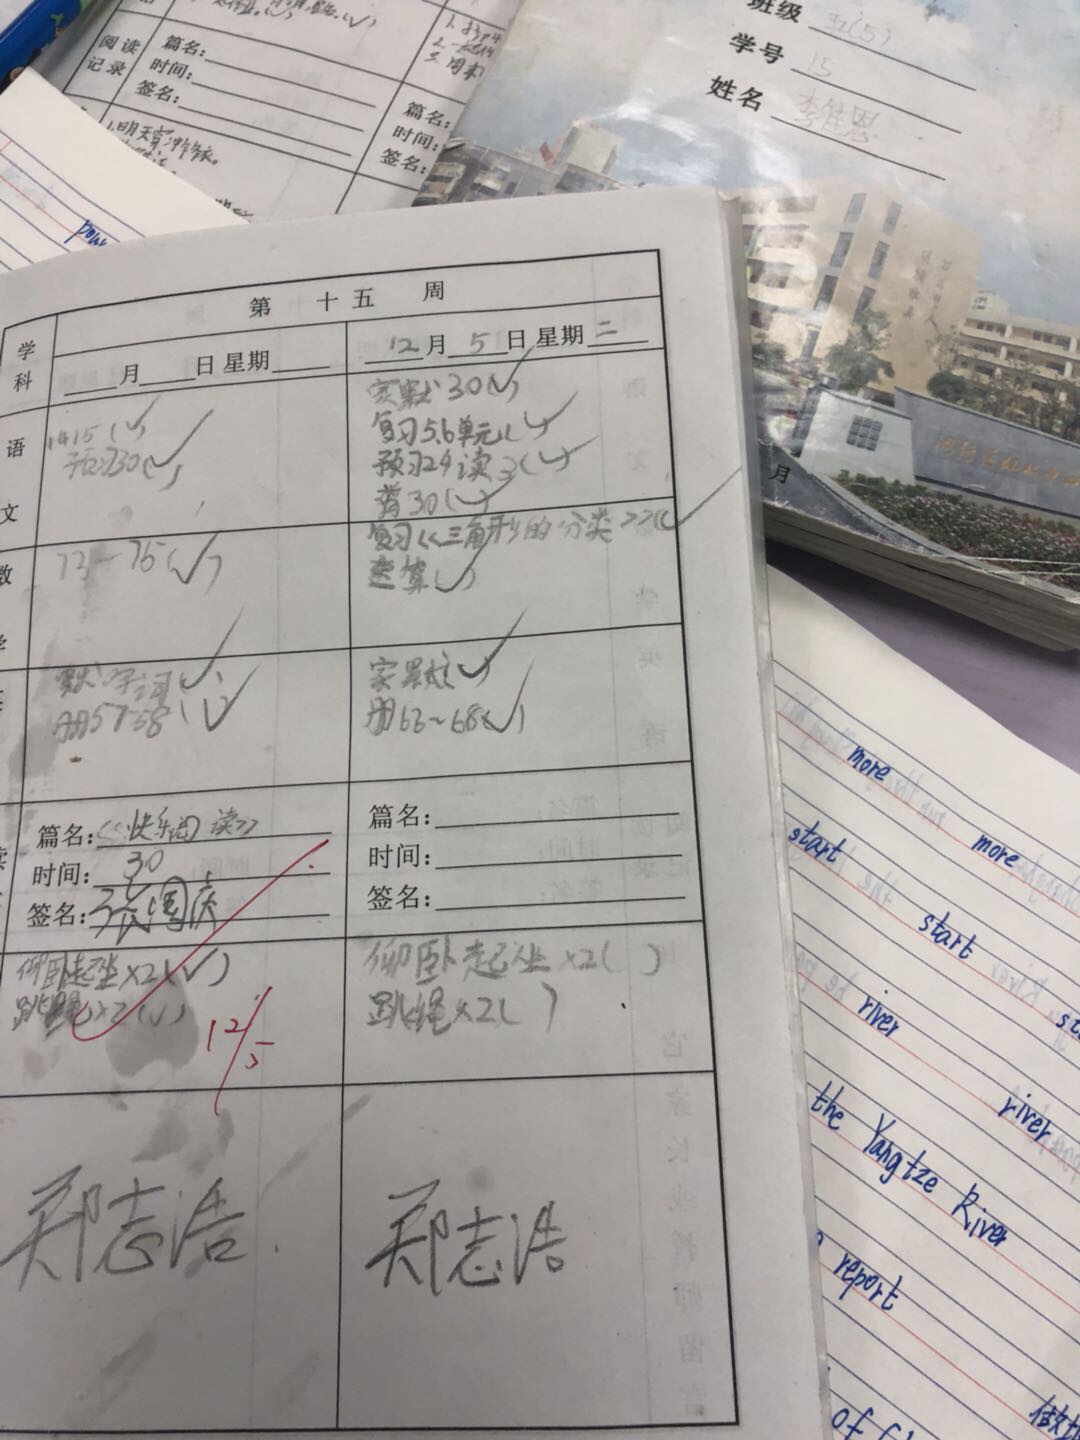 阅读
记录
篇名:
时间:
签名:
篇名:
时间:
签名:
班级 五(5)
学号 15
姓名
第 十 五 周
学科
月 日 星期
12月 5日 星期二
语文
1415(√)
预习30(√)
家默30(√)
复习5.6单元(√)
预习24读3(√)
背30(√)
数
73-75(√)
复习《三角形的分类》(√)
(√)
默字词(√)
册57-58(√)
家默(√)
册63~68(√)
篇名:《快乐阅读》
时间: 30
签名: 张国庆
篇名:
时间:
签名:
仰卧起坐×2(√)
跳绳×2(√)
12/5
仰卧起坐×2( )
跳绳×2( )
郑志浩
郑志浩
月
more
more
start
start
river
river
the Yangtze River
report
of